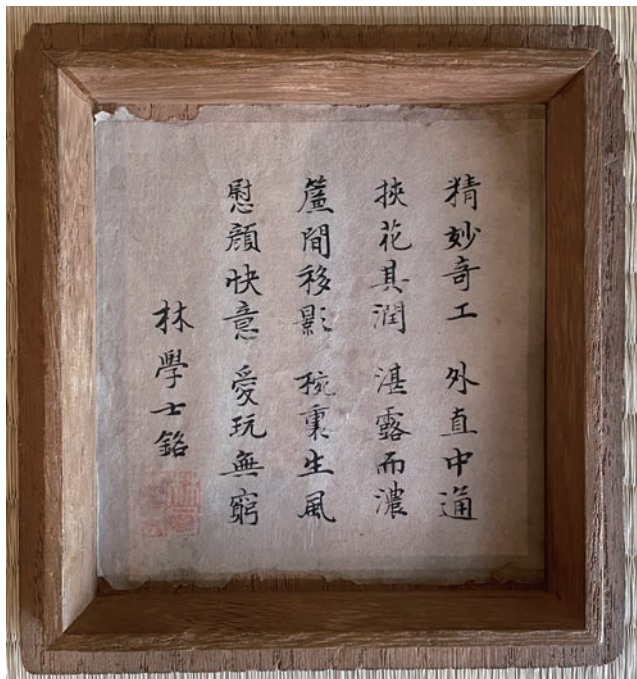 精妙奇工　外直中通
挾花其潤　湛露而濃
簾間移影　椀裏生風
慰顔快意　愛玩無窮
林學士銘